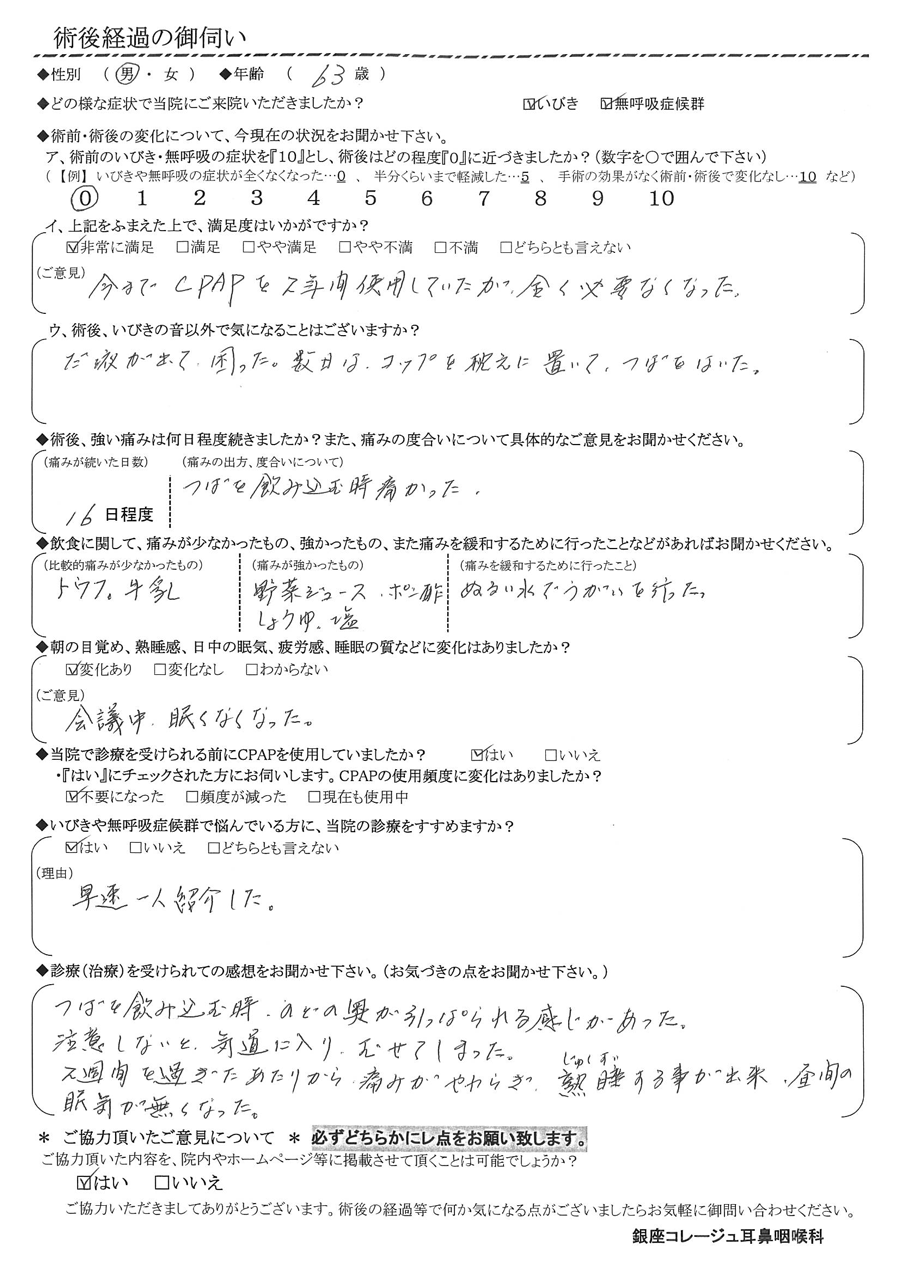 術後経過の御伺い
◆性別 （ 男 ・ 女 ） ◆年齢 （ 63 歳 ）
◆どの様な症状で当院にご来院いただきましたか？ ☑いびき ☑無呼吸症候群
◆術前・術後の変化について、今現在の状況をお聞かせ下さい。
ア、術前のいびき・無呼吸の症状を『10』とし、術後はどの程度『0』に近づきましたか？（数字を○で囲んで下さい）
（【例】 いびきや無呼吸の症状が全くなくなった…0 、 半分くらいまで軽減した…5 、 手術の効果がなく術前・術後で変化なし…10 など）
0 1 2 3 4 5 6 7 8 9 10
イ、上記をふまえた上で、満足度はいかがですか？
☑非常に満足 □満足 □やや満足 □やや不満 □不満 □どちらとも言えない
（ご意見） 今まで CPAPを2年間使用していたが、全く必要なくなった。
ウ、術後、いびきの音以外で気になることはございますか？
だ液が出て、困った。数日は、コップを枕元に置いて、つばをはいた。
◆術後、強い痛みは何日程度続きましたか？また、痛みの度合いについて具体的なご意見をお聞かせください。
（痛みが続いた日数） （痛みの出方、度合いについて）
つばを飲み込む時痛かった．
16 日程度
◆飲食に関して、痛みが少なかったもの、強かったもの、また痛みを緩和するために行ったことなどがあればお聞かせください。
（比較的痛みが少なかったもの） （痛みが強かったもの） （痛みを緩和するために行ったこと）
トウフ。牛乳 野菜ジュース．ポン酢 ぬるい水でうがいを行った。
しょうゆ、塩
◆朝の目覚め、熟睡感、日中の眠気、疲労感、睡眠の質などに変化はありましたか？
☑変化あり □変化なし □わからない
（ご意見）
会議中、眠くなくなった。
◆当院で診療を受けられる前にCPAPを使用していましたか？ ☑はい □いいえ
・『はい』にチェックされた方にお伺いします。CPAPの使用頻度に変化はありましたか？
☑不要になった □頻度が減った □現在も使用中
◆いびきや無呼吸症候群で悩んでいる方に、当院の診療をすすめますか？
☑はい □いいえ □どちらとも言えない
（理由）
早速一人紹介した。
◆診療（治療）を受けられての感想をお聞かせ下さい。（お気づきの点をお聞かせ下さい。）
つばを飲み込む時、のどの奥が引っぱられる感じがあった。
注意しないと、気道に入り、むせてしまった。
じゅくすい
2週間を過ぎたあたりから、痛みがやわらぎ、熟睡する事が出来、昼間の
眠気が無くなった。
＊ ご協力頂いたご意見について ＊ 必ずどちらかにレ点をお願い致します。
ご協力頂いた内容を、院内やホームページ等に掲載させて頂くことは可能でしょうか？
☑はい □いいえ
ご協力いただきましてありがとうございます。術後の経過等で何か気になる点がございましたらお気軽に御問い合わせください。
銀座コレージュ耳鼻咽喉科